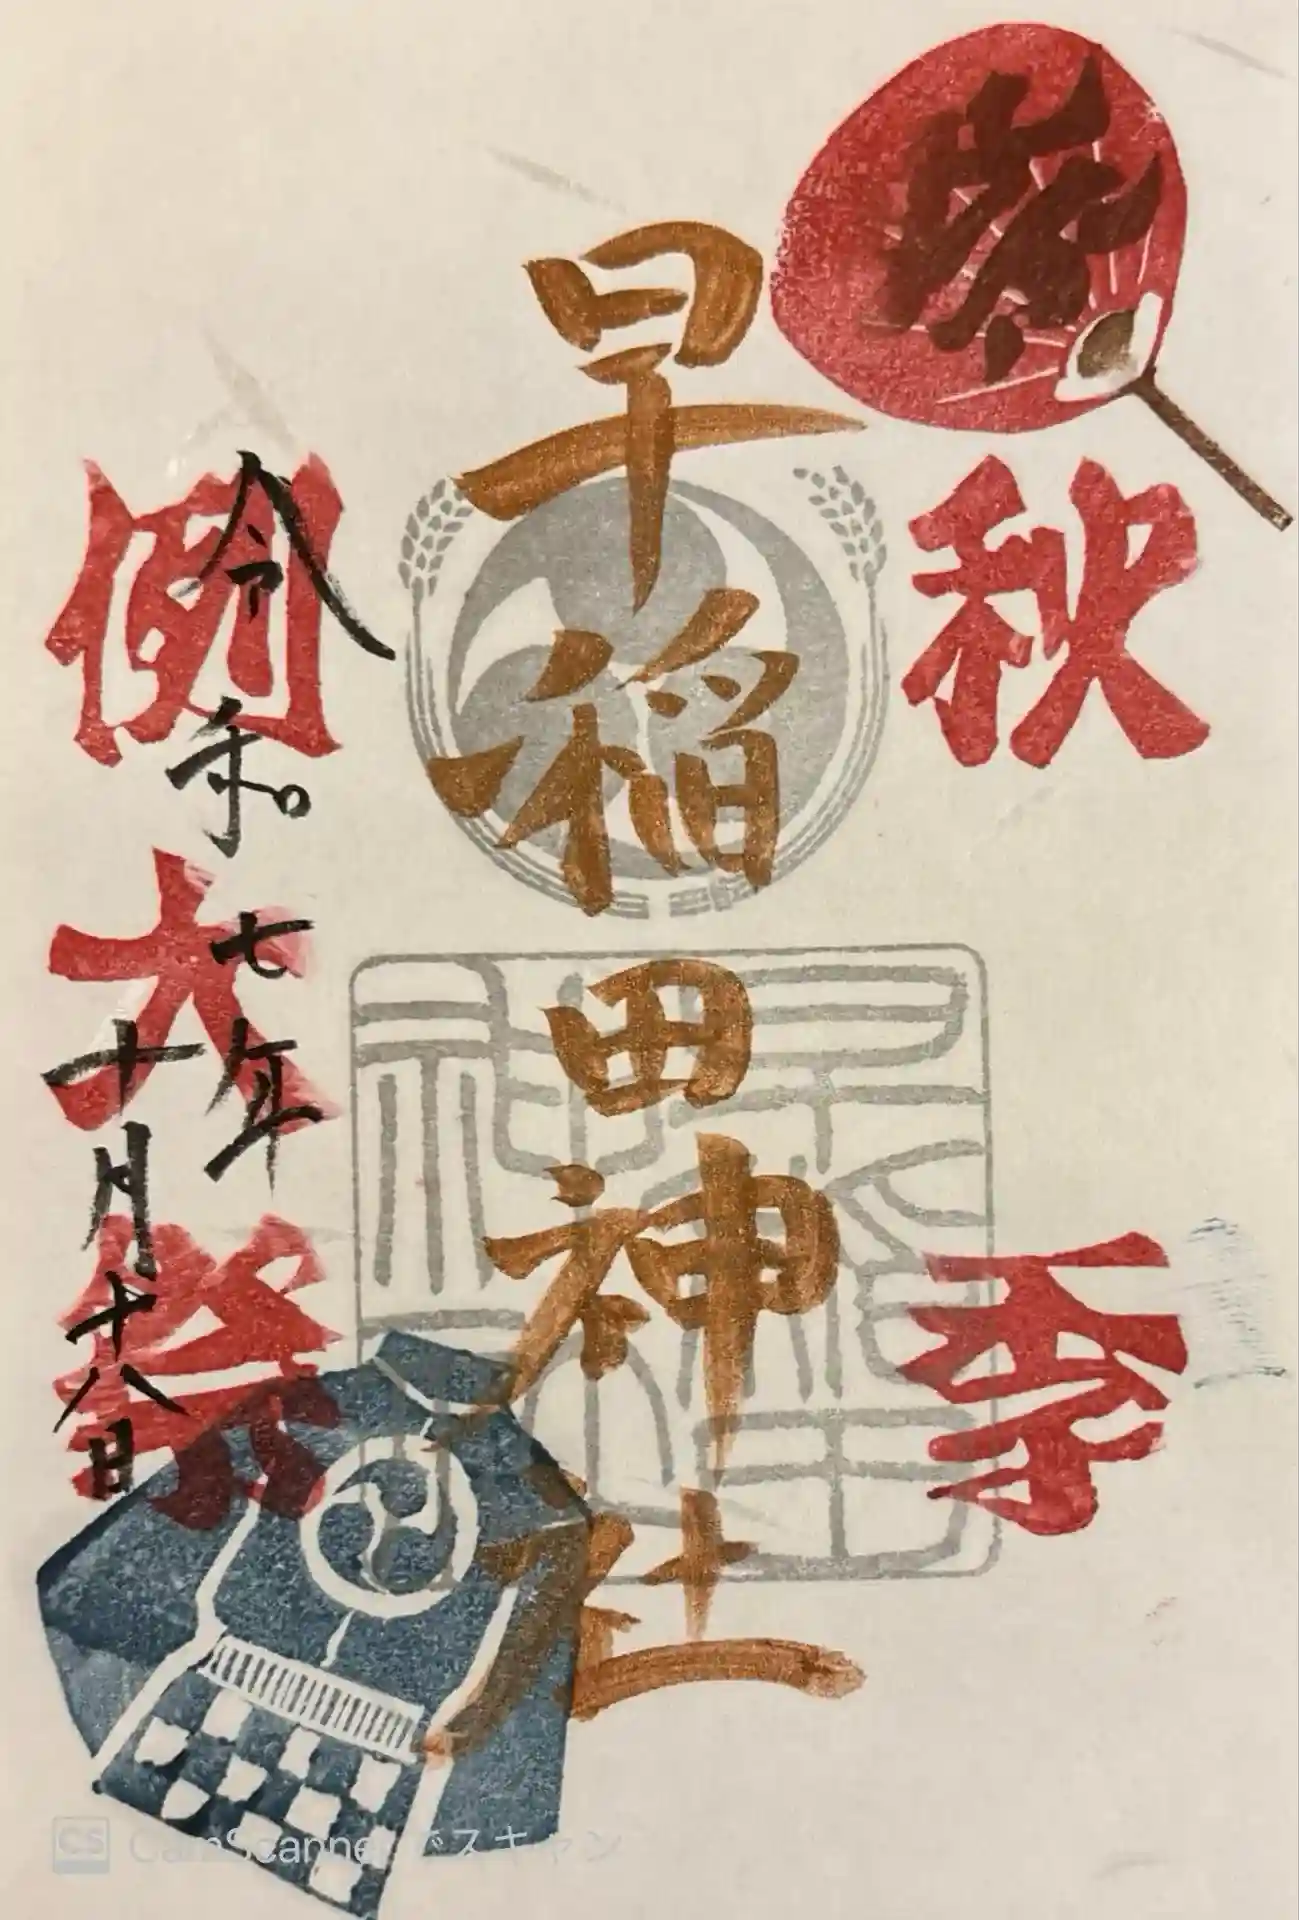 祭
秋季
早稲田神社
例大祭
令和七年
十月十八日
CS CamScannerでスキャン